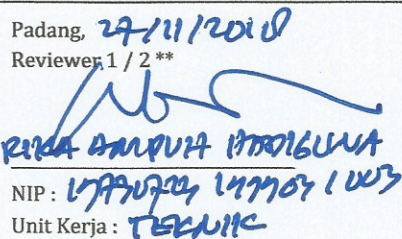 Padang, 27/11/2018
Reviewer 1 / 2 **
RIKA AMPUH HADIGUNA
NIP : 19730723 199903 1 003
Unit Kerja : TEKNIK